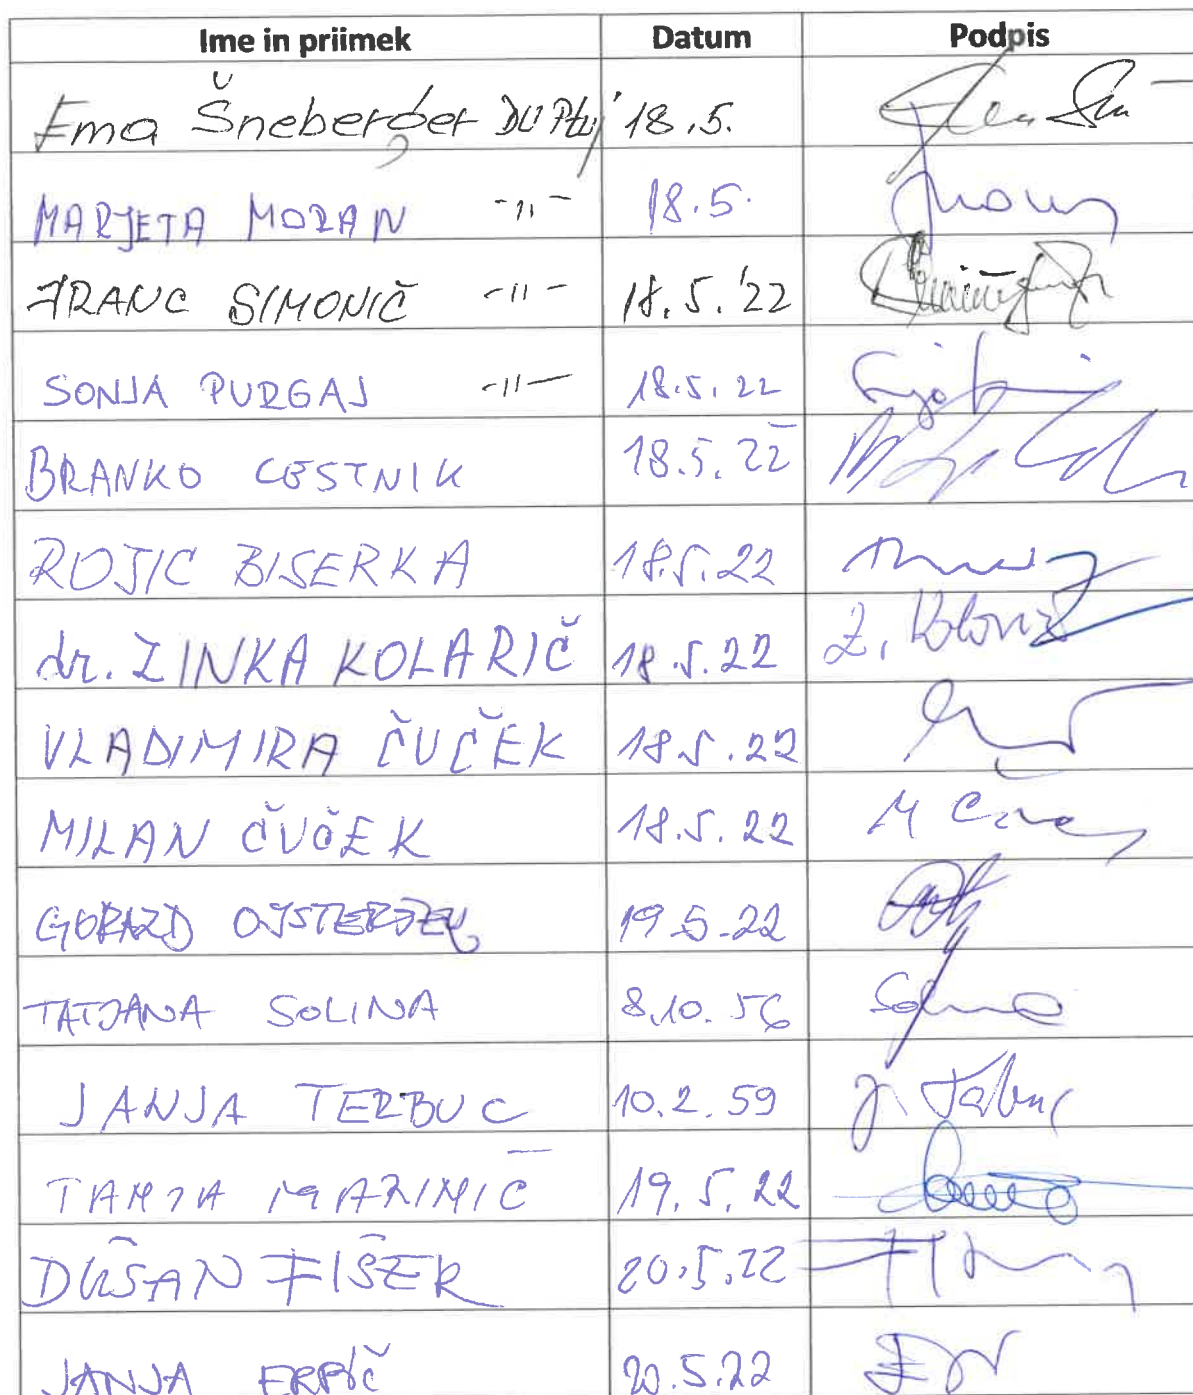 Ime in priimek Datum Podpis
Ema Šneberger DU Ptuj 18.5.
MARJETA MORAN -11- 18.5.
FRANC SIMONIČ -11- 18.5.'22
SONJA PURGAJ -11- 18.5.22
BRANKO CESTNIK 18.5.22
ROJIC BISERKA 18.5.22
dr. ZINKA KOLARIČ 18.5.22 Z. Kolarič
VLADIMIRA ČUČEK 18.5.22
MILAN ČUČEK 18.5.22
GORAZD 19.5.22
TATJANA SOLINA 8.10.56 Solina
JANJA TERBUC 10.2.59 J. Terbuc
19.5.22
DUŠAN FIŠER 20.5.22
JANJA 20.5.22